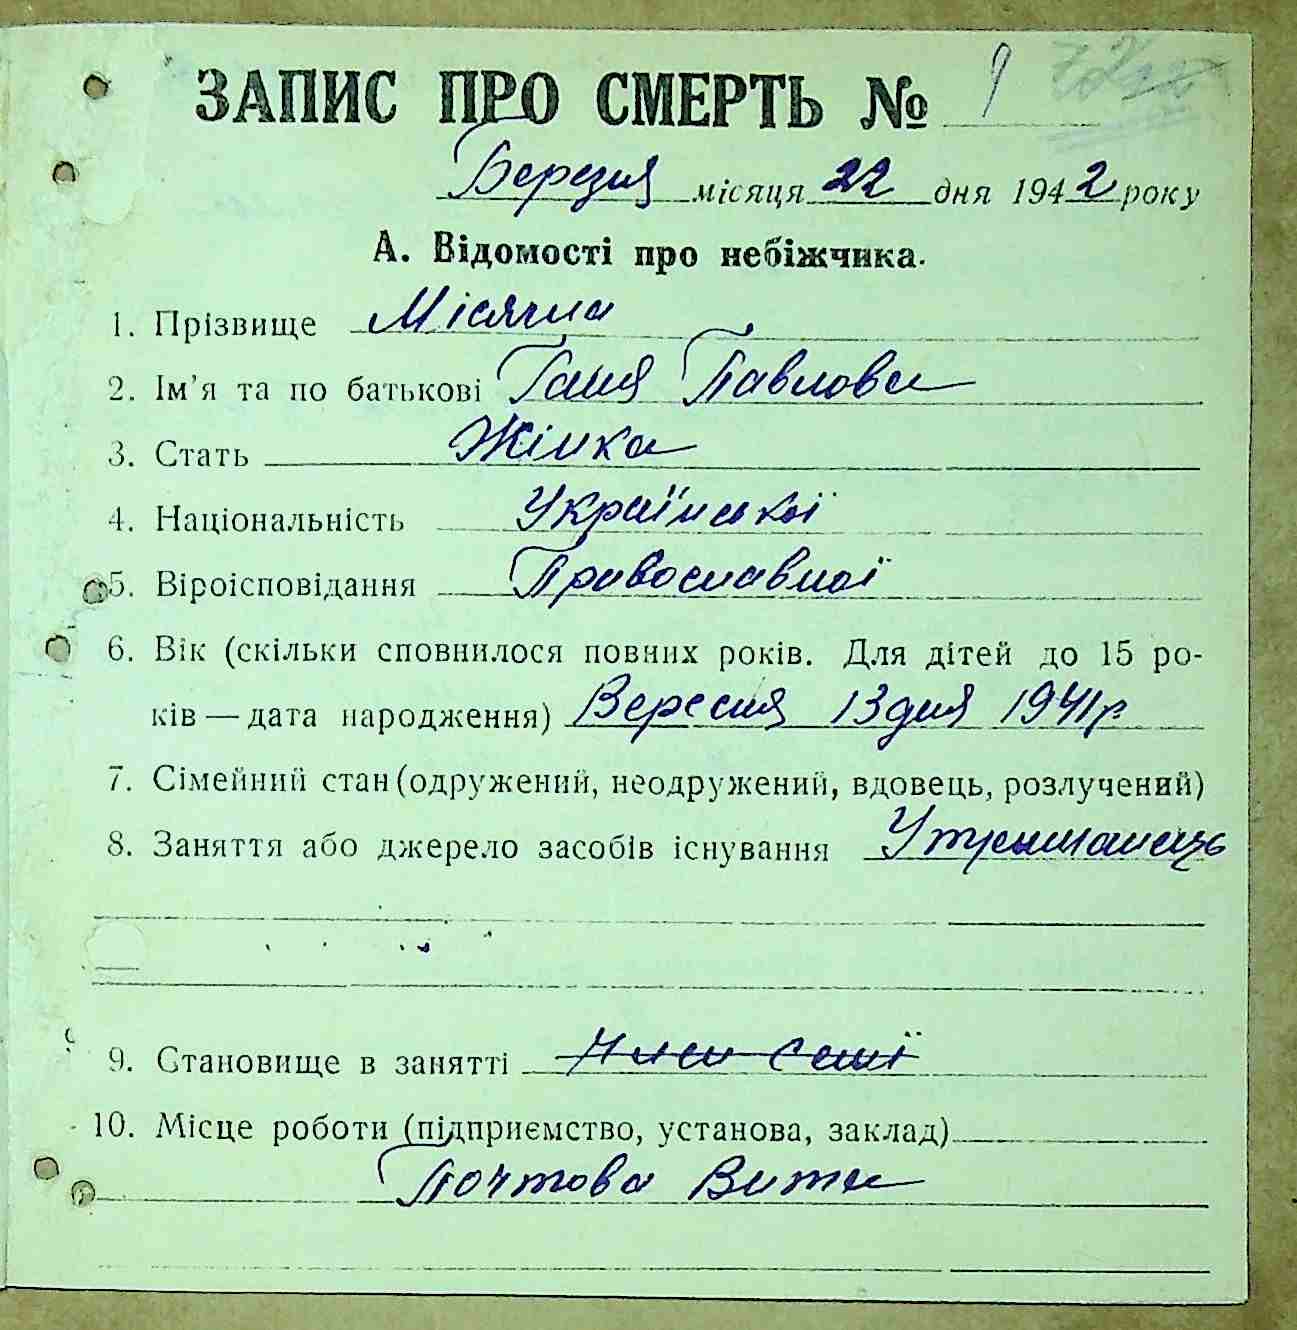 ЗАПИС ПРО СМЕРТЬ № 9
Березня місяця 22 дня 1942 року
А. Відомості про небіжчика.
1. Прізвище Місячна
2. Ім’я та по батькові Ганя Павловна
3. Стать Жінка
4. Національність Української
5. Віроісповідання Православної
6. Вік (скільки сповнилося повних років. Для дітей до 15 ро-
ків — дата народження) Вересня 13 дня 1941 р
7. Сімейний стан (одружений, неодружений, вдовець, розлучений)
8. Заняття або джерело засобів існування Утрыманець
9. Становище в занятті
10. Місце роботи (підприємство, установа, заклад)
Почтова Вита